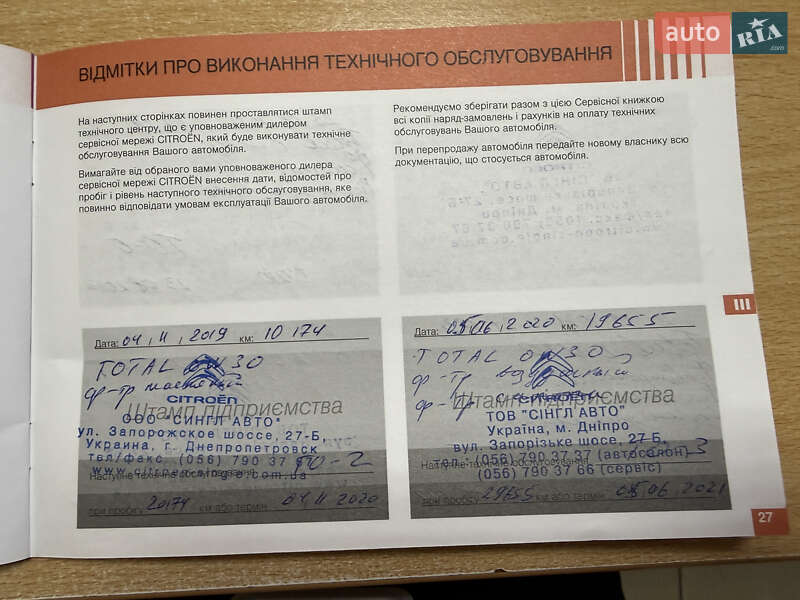 auto RIA .com
ВІДМІТКИ ПРО ВИКОНАННЯ ТЕХНІЧНОГО ОБСЛУГОВУВАННЯ
На наступних сторінках повинен проставлятися штамп
технічного центру, що є уповноваженим дилером
сервісної мережі CITROËN, який буде виконувати технічне
обслуговування Вашого автомобіля.
Вимагайте від обраного вами уповноваженого дилера
сервісної мережі CITROËN внесення дати, відомостей про
пробіг і рівень наступного технічного обслуговування, яке
повинно відповідати умовам експлуатації Вашого автомобіля.
Рекомендуємо зберігати разом з цією Сервісної книжкою
всі копії наряд-замовлень і рахунків на оплату технічних
обслуговувань Вашого автомобіля.
При перепродажу автомобіля передайте новому власнику всю
документацію, що стосується автомобіля.
III
Дата: 04,11,2019 км: 10 174
TOTAL 0W30
ф-тр масляный
CITROËN
Штамп підприємства
ООО "СИНГЛ АВТО"
ул. Запорожское шоссе, 27-Б,
Украина, г. Днепропетровск
тел/факс (056) 790 37
Наступне технічне обслуговування ТО-2
при пробігу 20174 км або термін 04,11,2020
Дата: 05,06,2020 км: 19655
TOTAL 0W30
ф-тр воздушный
ф-тр
Штамп підприємства
ТОВ "СІНГЛ АВТО"
Україна, м. Дніпро
вул. Запорізьке шосе, 27 Б,
тел. (056) 790 37 37 (автосалон)
Наступне технічне обслуговування 3
(056) 790 37 66 (сервіс)
при пробігу 29655 км або термін 05,06,2021
27